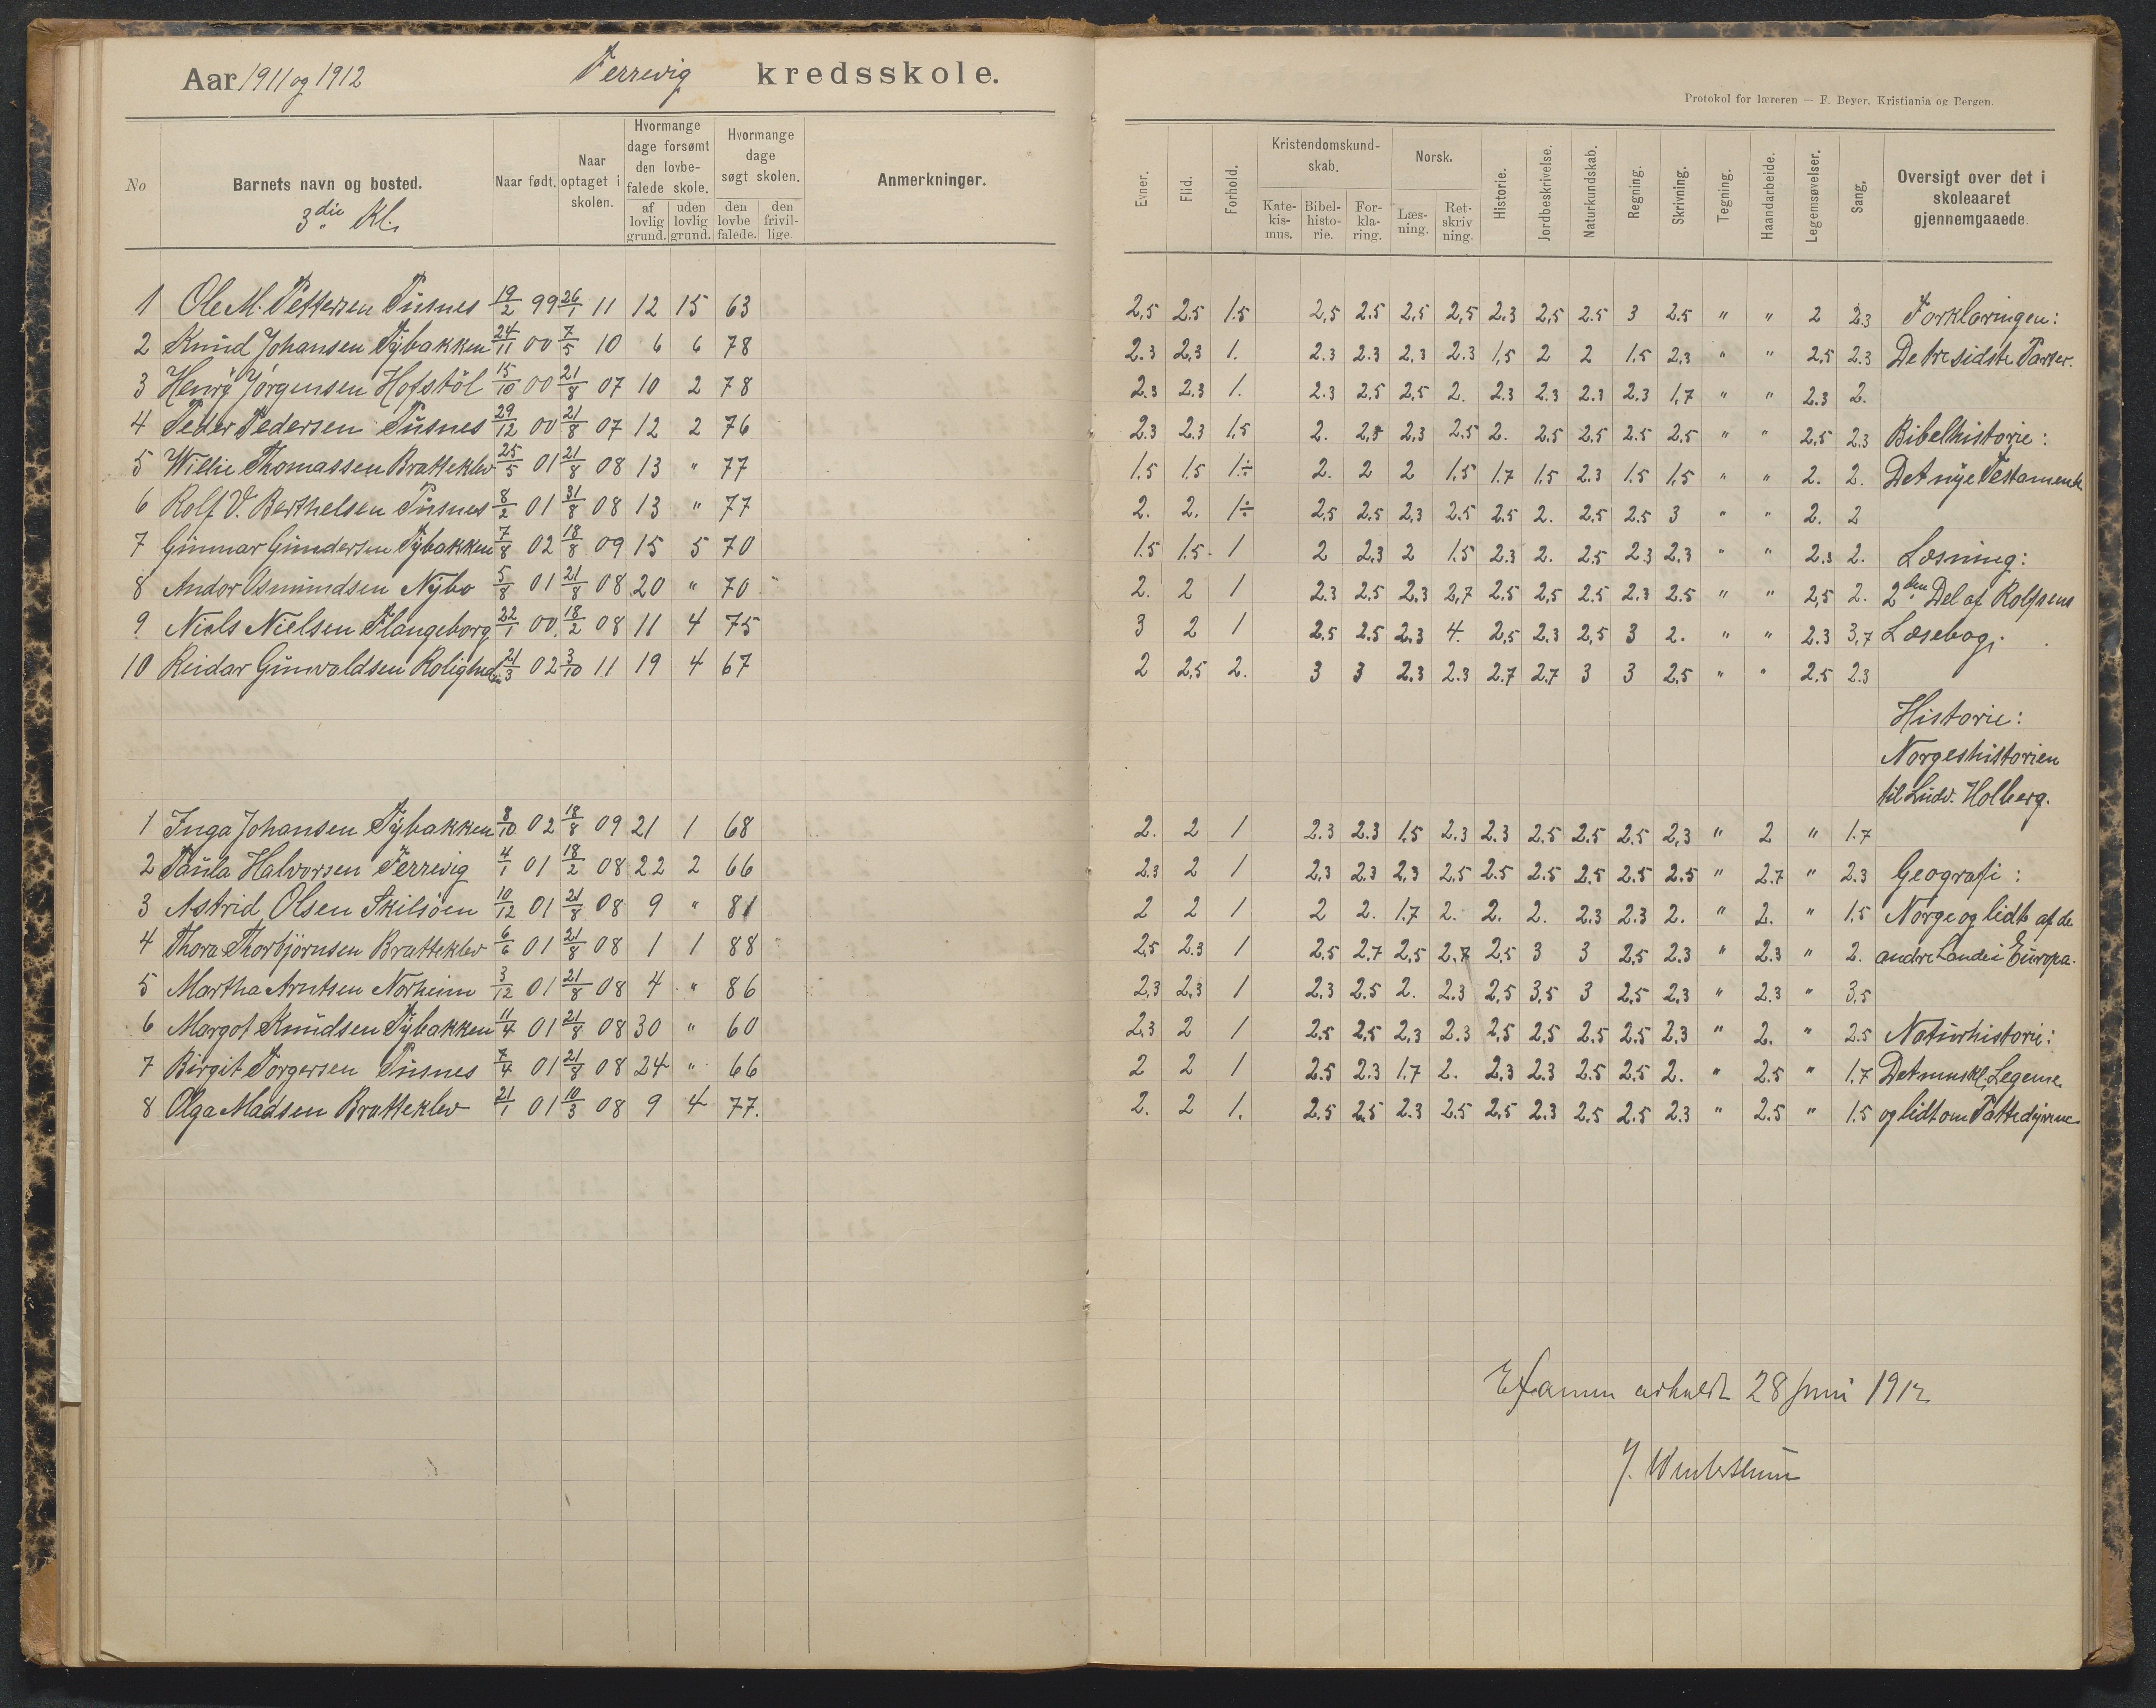 Aar 1911 og 1912 Ferrevig kredsskole.
Protokol for læreren — F. Beyer. Kristiania og Bergen.
No Barnets navn og bosted. Naar født. Naar optaget i skolen. Hvormange dage forsømt den lovbefalede skole. af lovlig grund. uden lovlig grund. Hvormange dage søgt skolen. den lovbefalede. den frivillige. Anmerkninger.
3die Kl.
Evner. Flid. Forhold. Kristendomskundskab. Katekismus. Bibelhistorie. Forklaring. Norsk. Læsning. Retskrivning. Historie. Jordbeskrivelse. Naturkundskab. Regning. Skrivning. Tegning. Haandarbeide. Legemsøvelser. Sang. Oversigt over det i skoleaaret gjennemgaaede.
1 Ole M. Pettersen Pusnes 19/2 99 26/1 11 12 15 63 2,5 2.5 1.5 2,5 2.5 2,5 2,5 2.3 2,5 2.5 3 2.5 " " 2 2.3 Forklaringen:
2 Knud Johansen Tybakken 24/11 00 7/5 10 6 6 78 2.3 2,3 1. 2.3 2.3 2,3 2.3 1,5 2 2 1.5 2,3 " " 2,5 2.3 De tre sidste Parter.
3 Henry Jørgensen Hofstöl 15/10 00 21/8 07 10 2 78 2.3 2.3 1. 2.3 2,5 2,5 2. 2.3 2.3 2.3 2.3 1,7 " " 2.3 2.
4 Peder Pedersen Pusnes 29/12 00 21/8 07 12 2 76 2.3 2.3 1,5 2. 2,5 2,3 2.5 2. 2.5 2.5 2.5 2,5 " " 2,5 2.3 Bibelhistorje:
5 Willie Thomassen Bratteklev 25/5 01 21/8 08 13 " 77 1.5 1.5 1÷ 2. 2 2 1.5 1.7 1.5 2.3 1.5 1,5 " " 2. 2. Det nye Testamente
6 Rolf V. Berthelsen Pusnes 8/2 01 31/8 08 13 " 77 2. 2. 1÷ 2,5 2.5 2,3 2.5 2.5 2. 2,5 2.5 3 " " 2. 2
7 Gunnar Gundersen Tybakken 7/8 02 18/8 09 15 5 70 1.5 1.5 1 2 2,3 2 1.5 2.3 2. 2.5 2.3 2.3 " " 2.3 2. Læsning:
8 Andor Osmundsen Nybo 5/8 01 21/8 08 20 " 70 2. 2 1 2.3 2.5 2,3 2,7 2,5 2,5 2.5 2.3 2.5 " " 2,5 2. 2den Del af Rolfsens
9 Niels Nielsen Flangeborg 22/1 00 18/2 08 11 4 75 3 2 1 2.5 2.5 2.3 4. 2,5 2.3 2,5 3 2. " " 2.3 3,7 Læsebog.
10 Reidar Gunvaldsen Roligheden 21/3 02 3/10 11 19 4 67 2 2,5 2. 3 3 2.3 2.3 2.7 2.7 3 3 2,5 " " 2.5 2.3
Historie:
Norgeshistorien
til Ludv. Holberg.
1 Inga Johansen Tybakken 8/10 02 18/8 09 21 1 68 2. 2 1 2.3 2.3 1.5 2.3 2.3 2.5 2.5 2.5 2,3 " 2 " 1.7
2 Paula Halvorsen Ferrevig 4/1 01 18/2 08 22 2 66 2.3 2 1 2,3 2.3 2,3 2.5 2.5 2.5 2.5 2.5 2.5 " 2.7 " 2.3 Geografi:
3 Astrid Olsen Skilsöen 10/12 01 21/8 08 9 " 81 2 2 1 2 2. 1.7 2. 2. 2. 2.3 2.3 2. " 2. " 1,5 Norge og lidt af de
4 Thora Thorbjörnsen Bratteklev 6/6 01 21/8 08 1 1 88 2,5 2.3 1 2.5 2,7 2,5 2.7 2,5 3 3 2,5 2.3 " 2.3 " 2. andre Lande i Europa.
5 Martha Arntsen Norheim 3/12 01 21/8 08 4 " 86 2,3 2,3 1 2.3 2.5 2. 2.3 2,5 3,5 3 2,5 2,3 " 2.3 " 3,5
6 Margot Knudsen Tybakken 11/4 01 21/8 08 30 " 60 2,3 2 1 2.5 2,5 2,3 2.3 2,5 2,5 2.5 2.5 2.3 " 2. " 2.5 Naturhistorie:
7 Birgit Törgersen Pusnes 7/4 01 21/8 08 24 " 66 2 2 1 2.5 2.3 1.7 2. 2,3 2.3 2.5 2.5 2. " 2.5 " 1,7 Det mnskl. Legeme
8 Olga Madsen Bratteklev 21/1 01 10/3 08 9 4 77. 2. 2 1. 2,5 2,5 2.3 2.5 2,5 2.3 2.5 2.5 2.3 " 2.5 " 1.5 og lidt om Pattedyrene
Examen avholdt 28 Juni 1912